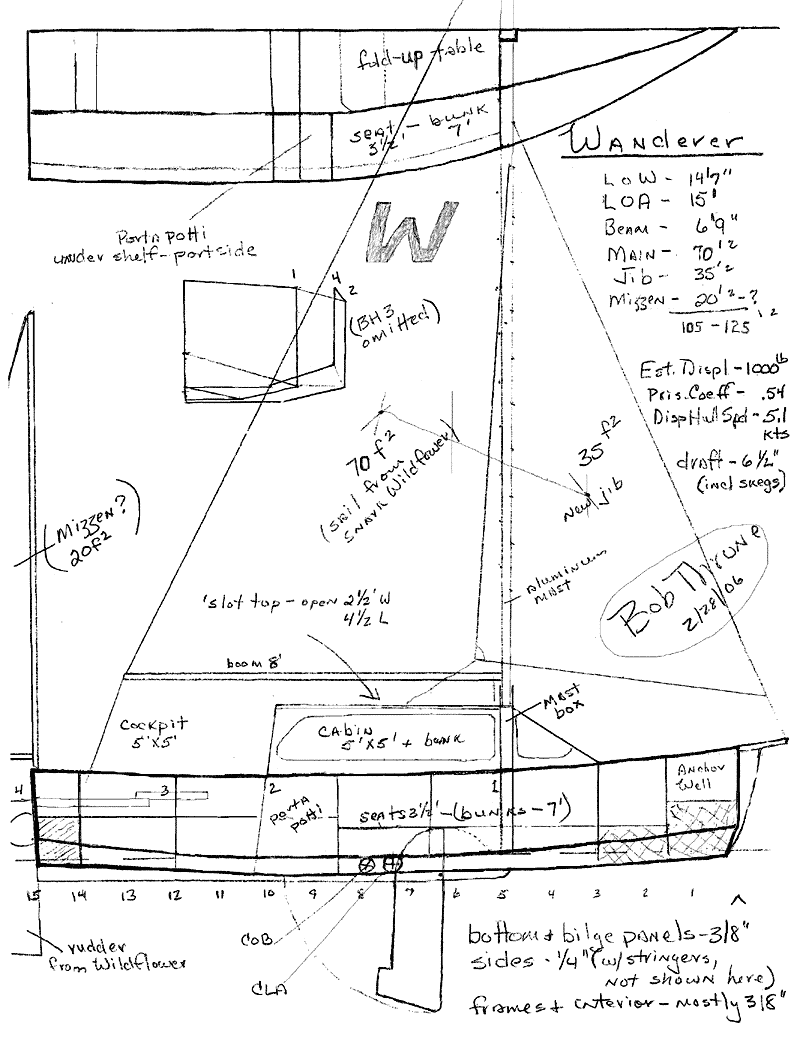 fold-up table
seat - bunk
3½' 7'
Wanderer
LOW - 14'7"
LOA - 15'
Beam - 6'9"
Main - 70'²
Jib - 35'²
Mizzen - 20'²-?
105 - 125'²
Porta Potti
under shelf-portside
W
1 4 2
(BH3
omitted)
Est. Displ - 1000lb
Pris. Coeff - .54
Disp Hull Spd - 5.1
kts
draft - 6½"
(incl skegs)
70 f²
(sail from
Snark Wildflower)
35 f²
New jib
(Mizzen?
20f²)
Aluminum
Mast
Bob Throne
2/28/06
'slot top - open 2½' W
4½ L
boom 8'
Mast
box
Cockpit
5'x5'
Cabin
5'x5' + bunk
Anchor
Well
4 3 2 1
porta
potti
seats 3½' - (bunks - 7')
15 14 13 12 11 10 9 8 7 6 5 4 3 2 1
rudder
from Wildflower
COB
CLA
bottom & bilge panels - 3/8"
sides - ¼" (w/stringers,
not shown here)
frames & interior - mostly 3/8"